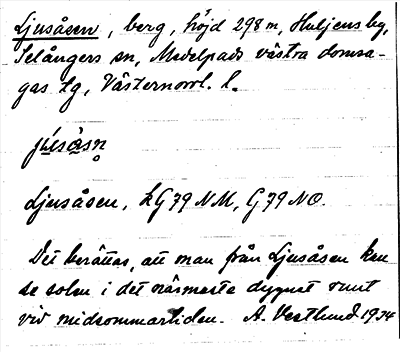 Ljusåsen, berg, höjd 298 m, Huljens by,
Selångers sn, Medelpads västra domsa-
gas tg, Västernorrl. l.
Ljusåsen, LG79NM, G79NO.
Det berättas, att man från Ljusåsen kan
se solen i det närmaste dygnet runt
vid midsommartiden. A. Vestlund 1934